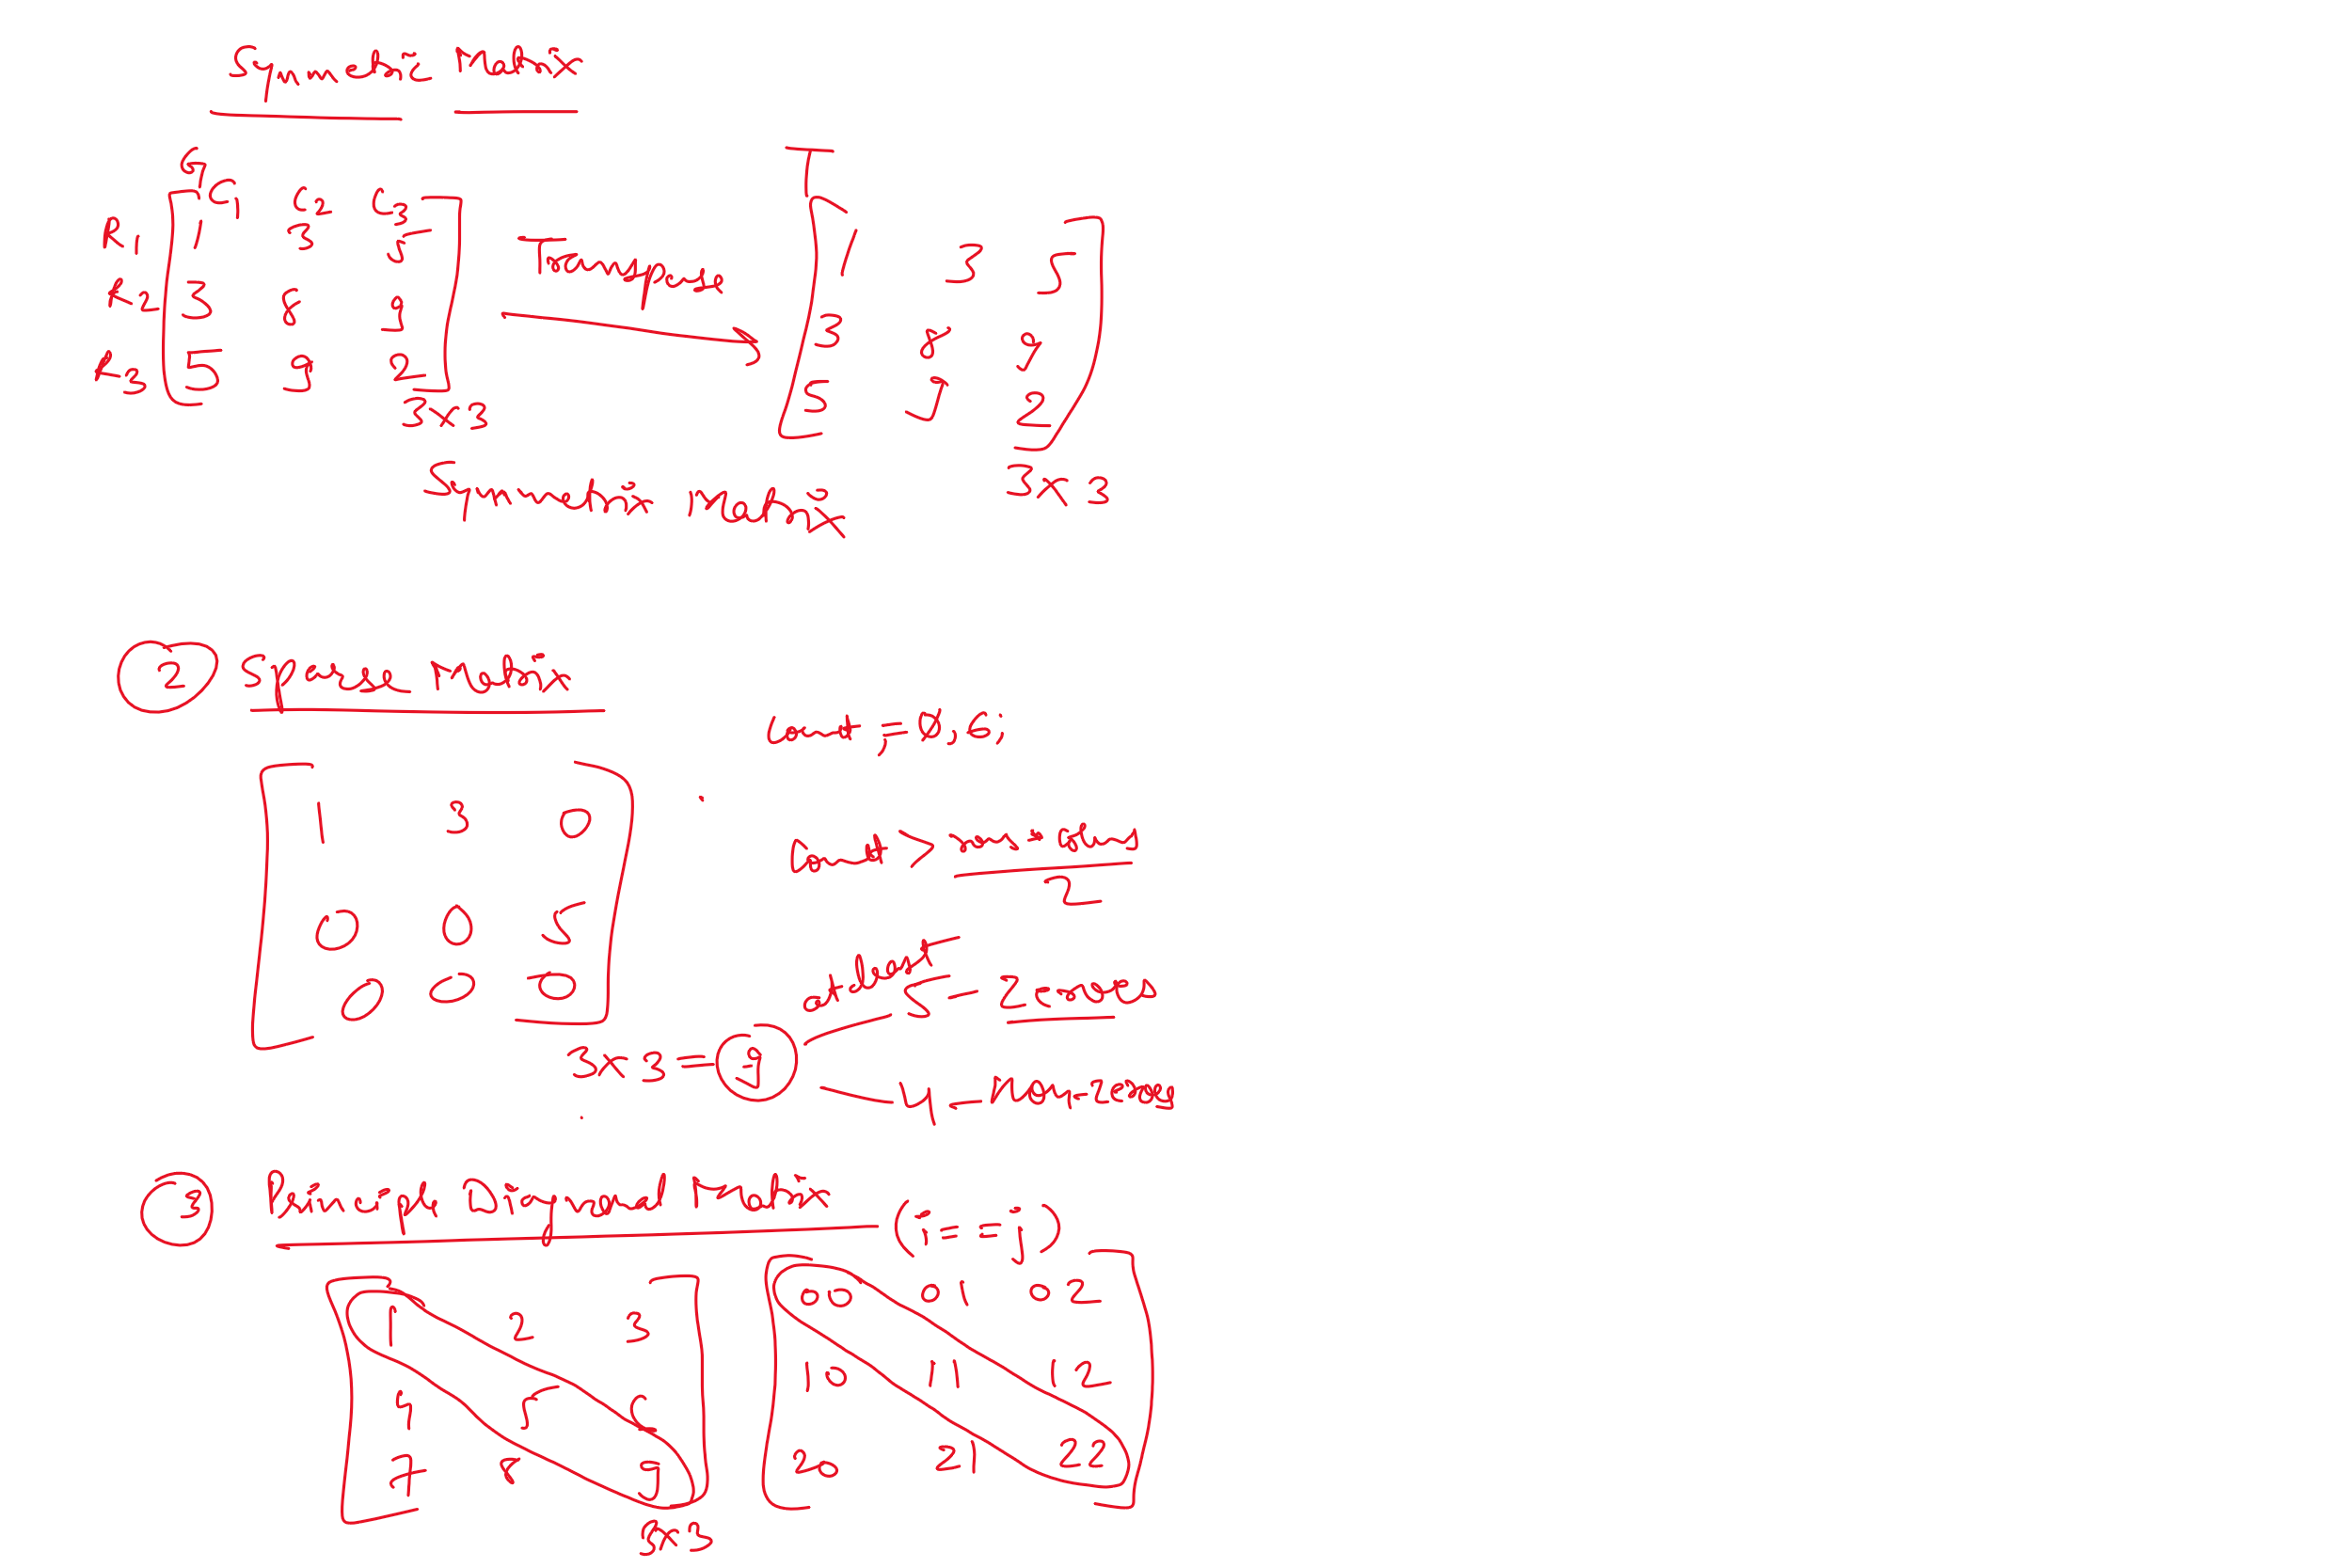 Symmetric Matrix
G
C1 C2 C3
R1 1 3 5
R2 3 8 9
R3 5 9 2
3x3
Transpose
T
1 3 5
3 8 9
5 9 2
3x3
Symmetrix matrix
2 Sparse Matrix
1 3 0
0 0 5
0 0 0
3x3 = 9
count = 0, 6;
count > rows*colns
2
at-least
5 - zeroes
4 - Non-zeroes
3 Principle Diagonal Matrix (i==j)
1 2 3
4 5 6
7 8 9
3x3
00 01 02
10 11 12
20 21 22